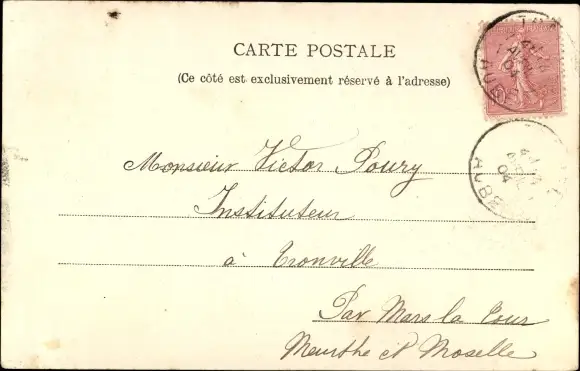 CARTE POSTALE
(Ce côté est exclusivement réservé à l'adresse)
Monsieur Victor Poury
Instituteur
à Tronville
Par Mars la Tour
Meurthe et Moselle
AUBE
04
AUBE
04